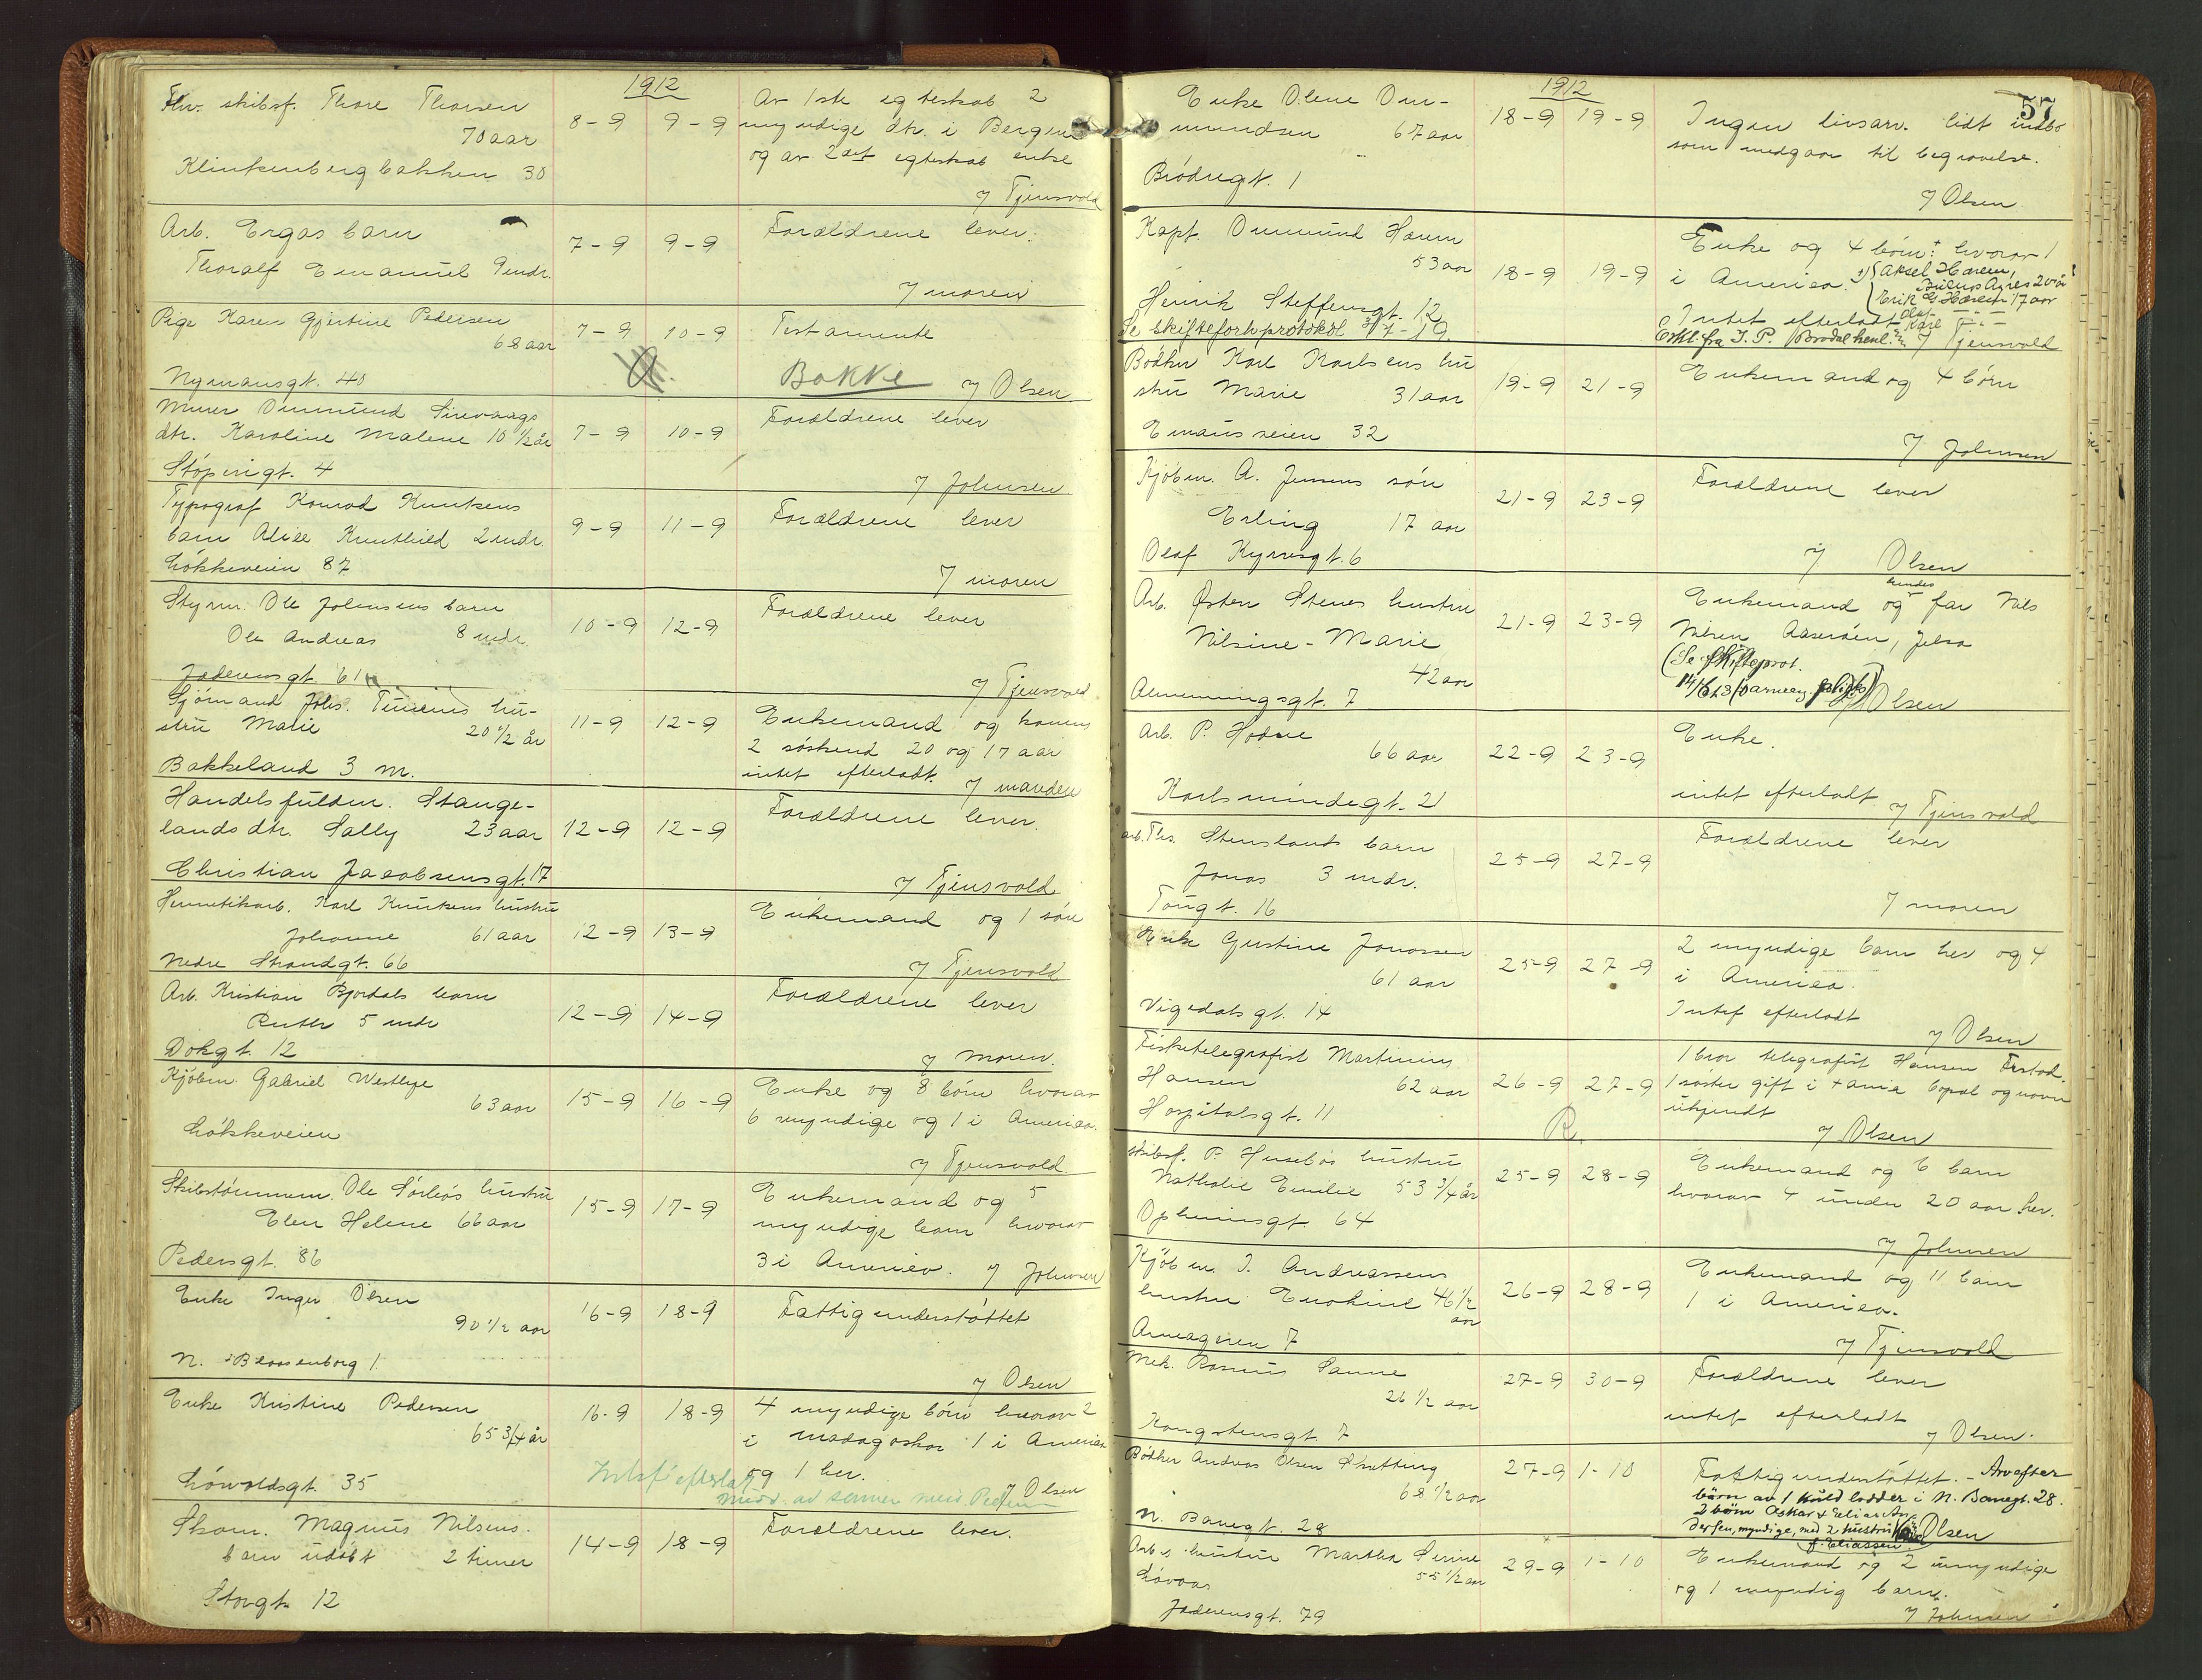 1912
Fhv. skibsf. Thore Thorsen
70 aar
Klinkenbergbakken 30
8-9 9-9
Av 1ste egteskab 2
myndige dtr. i Bergen
og av 2det egteskab enke
7 Tjensvold
Arb. Ergas barn
Thoralf Emanuel 9 mdr.
7-9 9-9
Forældrene lever.
7 moren
Pige Karen Gjertine Pedersen
68 aar
Nymansgt. 40
7-9 10-9
Testamente
Bakke
7 Olsen
Murer Ommund Sirevaags
dtr. Karoline Malene 10 1/2 år
Støperigt. 4
7-9 10-9
Forældrene lever
7 Johnsen
Typograf Konrad Knutsens
barn Alice Knuthild 2 mdr.
Løkkeveien 87
9-9 11-9
Forældrene lever
7 moren
Styrm. Ole Johnsens barn
Ole Andreas 8 mdr.
Jæderensgt. 61
10-9 12-9
Forældrene lever
7 Tjensvold
Sjømand Johs. hu-
stru Marie 20 1/2 år
Bakkeland 3 m.
11-9 12-9
Enkemand og konens
2 søskend 20 og 17 aar
intet efterladt.
7 manden
Handelsfuldm. Stange-
lands dtr. Sally 23 aar
Christian Jacobsensgt. 17
12-9 12-9
Forældrene lever.
7 Tjensvold
Hermetikarb. Karl Knutsens hustru
Johanne 61 aar
Nedre Strandgt. 66
12-9 13-9
Enkemand og 1 søn
7 Tjensvold
Arb. Kristian Bjordals barn
Ruth 5 mdr
Dokgt. 12
12-9 14-9
Forældrene lever
7 moren.
Kjøbm. Gabriel Westlye
63 aar
Løkkeveien
15-9 16-9
Enke og 8 børn hvorav
6 myndige og 1 i America.
7 Tjensvold.
Skibstømmerm. Ole Sørbøs hustru
Elen Helene 66 aar
Pedersgt. 86
15-9 17-9
Enkemand og 5
myndige barn hvorav
3 i America. 7 Johnsen
Enke Inger Olsen
90 1/2 aar
N. Blaasenborg 1.
16-9 18-9
Fattigunderstøttet
7 Olsen
Enke Kristine Pedersen
65 3/4 år
Løwoldsgt. 35
16-9 18-9
4 myndige børn hvorav 2
i Madagaskar 1 i America
og 1 her.
7 Olsen
Skom. Magnus Nilsens
barn udøbt 2 timer
Storgt. 12
14-9 18-9
Forældrene lever.
57
1912
Enke Olene Om-
mundsen 67 aar
Brødregt. 1
18-9 19-9
Ingen livsarv. lidt indbo
som medgaar til begravelse.
7 Olsen
Kapt. Ommund Haren
53 aar
Henrik Steffensgt. 12
Se skifteforh.protokol 3/7-19.
18-9 19-9
Enke og 4 børn + hvorav 1
i America.
+) Aksel Haren,
Buenos Ayres 20 år
Erik G. Haren 17 aar
Olaf
Karl
Intet efterladt
7 Tjensvold
Bødker Karl Karlsens hu
stru Marie 31 aar
Emausveien 32
19-9 21-9
Enkemand og 4 børn
7 Johnsen
Kjøbm. A. Jensens søn
Erling 17 aar
Olaf Kyrresgt. 6
21-9 23-9
Forældrene lever
7 Olsen
Arb. Østen Stenes hustru
Nilsine-Marie
42 aar
Almenningsgt. 7
21-9 23-9
Enkemand og hendes far Nils
Nilsen Aaserøen, Jelsa
(Se skifteprot.
7 Olsen
Arb. P. Hodne
66 aar
Karlsmindegt. 21
22-9 23-9
Enke.
intet efterladt
7 Tjensvold
Arb. Ths. Stenslands barn
Jonas 3 mdr.
Tougt. 16
25-9 27-9
Forældrene lever
7 moren
Enke Gustine Jonassen
61 aar
Vigedalsgt. 14
25-9 27-9
2 myndige barn her og 4
i America.
Intet efterladt
7 Olsen
Fisketelegrafist Martinius
Hansen 62 aar
Hospitalsgt. 11
26-9 27-9
R.
1 bror telegrafist Hansen
1 søster gift i Amerika opal og navn
ukjendt
7 Olsen
Skibsf. P. Husebøs hustru
Nathalie Emilie 53 3/4 år
Opheimsgt. 64
25-9 28-9
Enkemand og 6 barn
hvorav 4 under 20 aar her.
7 Johnsen
Kjøbm. I. Andreassens
hustru 46 1/2
aar
7
26-9 28-9
Enkemand og 11 barn
1 i America.
7 Tjensvold
Mek. Rasmus Sanne
26 1/2 aar
Kongstensgt. 7
27-9 30-9
Forældrene lever
intet efterladt
7 Olsen.
Bødker Andreas Olsen
68 1/2 aar
N. Banegt. 28
27-9 1-10
Fattigunderstøttet. - Arv efter
børn av 1 kuld lodder i N. Banegt. 28.
2 børn Oskar & Elias An-
dersen, myndige, med 2 hustru
f. Eliassen.
7 Olsen
Arb.s hustru Martha Serine
Løvaas 55 1/2 aar
Jæderensgt. 79
29-9 1-10
Enkemand og 2 umyndige
og 1 myndig barn.
7 Johnsen